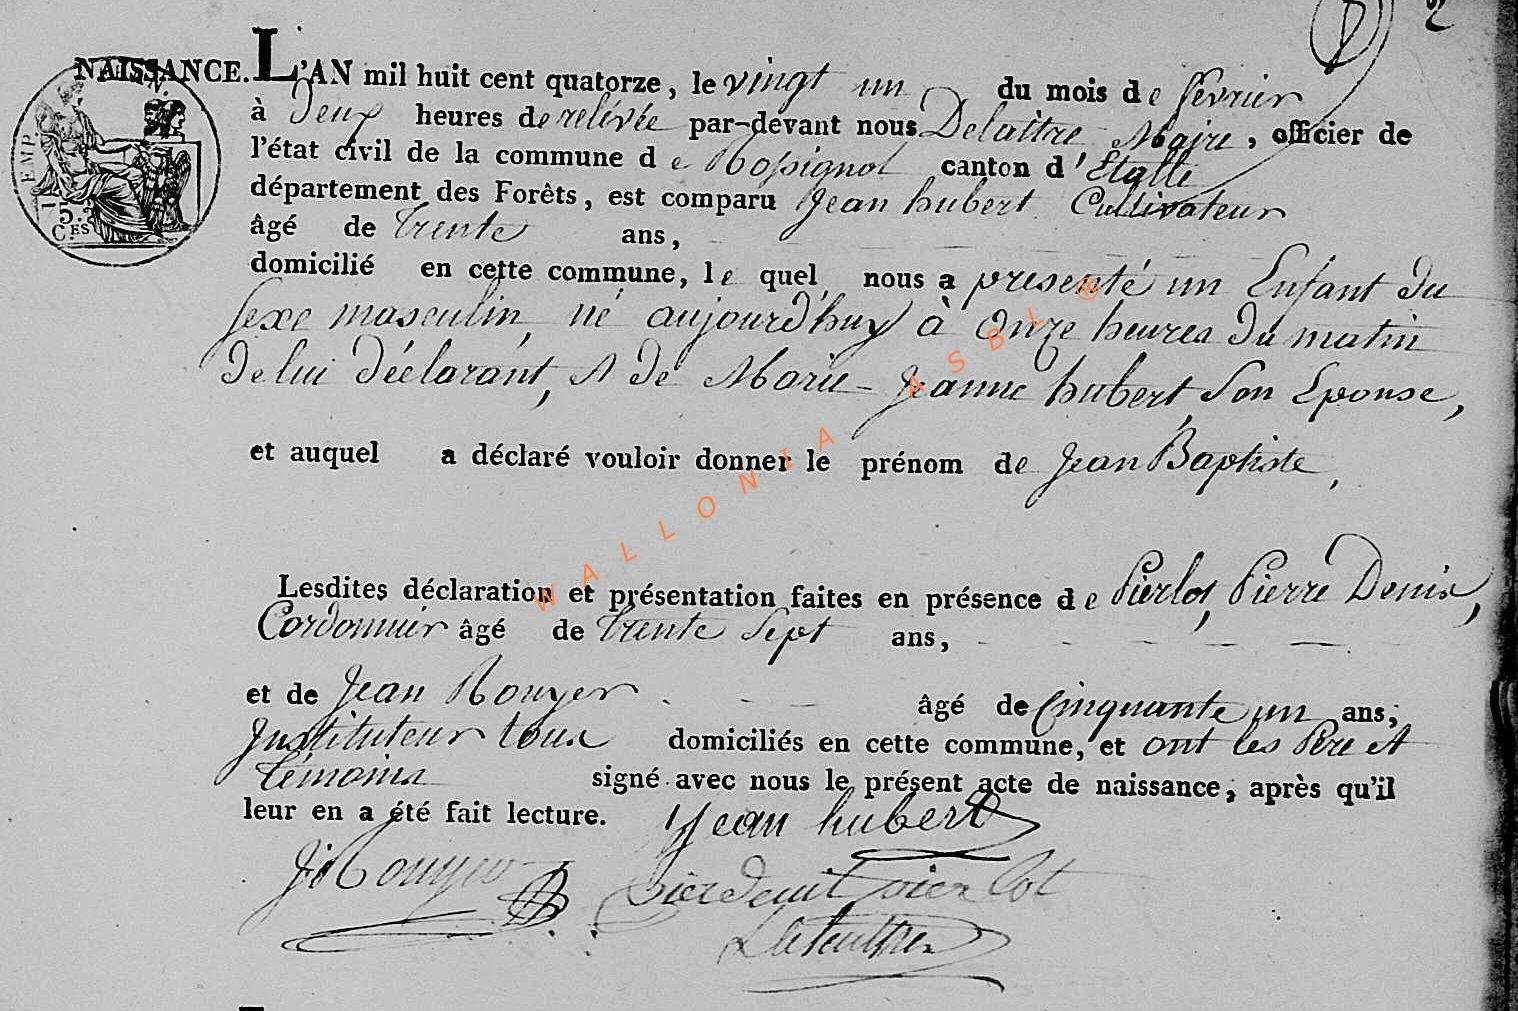 2
NAISSANCE. L'AN mil huit cent quatorze, le vingt un du mois de février
à deux heures de relévée par-devant nous Delaittre Maire, officier de
l'état civil de la commune de Rossignol canton d'Etalle
département des Forêts, est comparu Jean hubert Cultivateur
âgé de trente ans,
domicilié en cette commune, lequel nous a présenté un Enfant du
sexe masculin, né aujourd'huy à Onze heures du matin
de lui déclarant, et de Marie-Jeanne hubert, son Epouse,
et auquel a déclaré vouloir donner le prénom de Jean Baptiste,
Lesdites déclaration et présentation faites en présence de Pierlot, Pierre Denis,
Cordonnier âgé de trente sept ans,
et de Jean Rouyer âgé de Cinquante un ans,
Instituteur tous domiciliés en cette commune, et ont les Père et
témoins signé avec nous le présent acte de naissance, après qu'il
leur en a été fait lecture. Jean hubert
J Rouyer pierlot
Delaittre
EMP.
5.
C.ES
WALLONIA ASBL ®